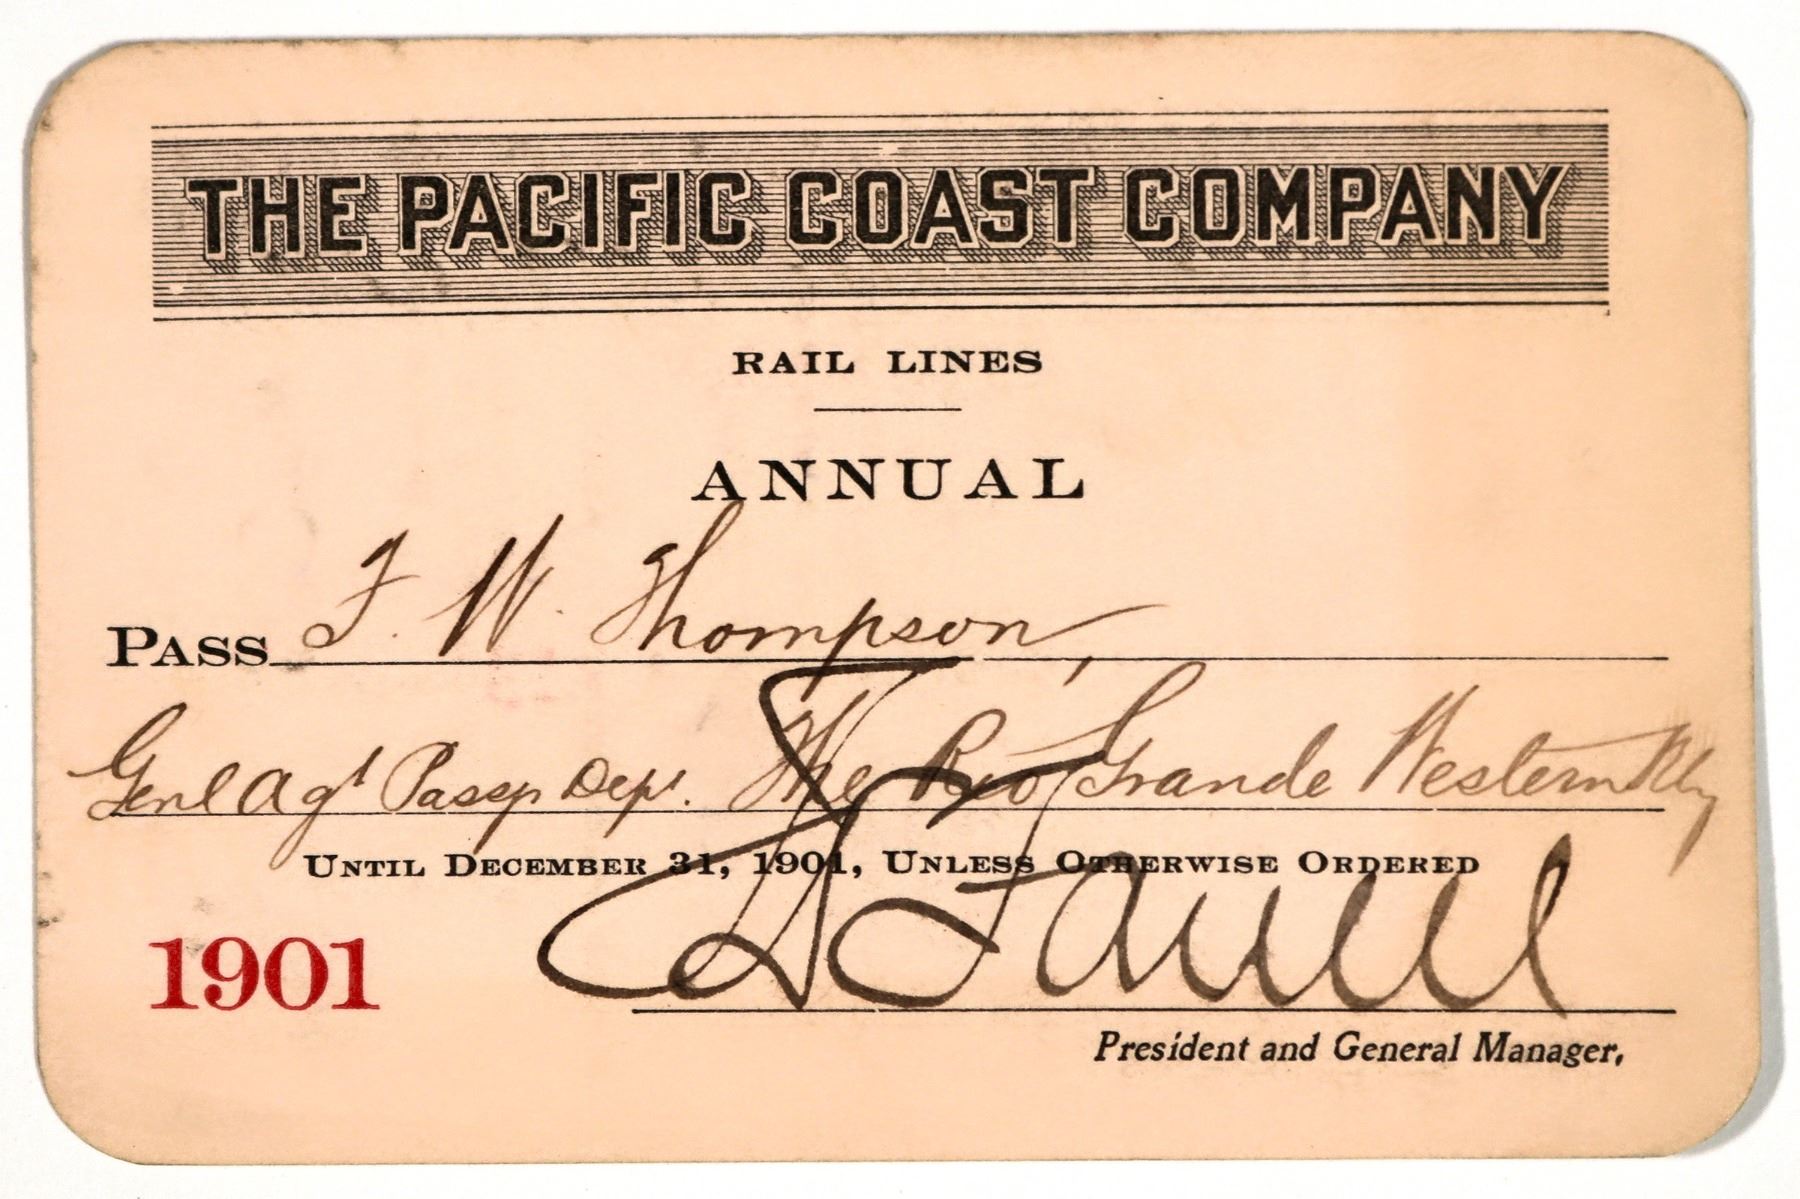 THE PACIFIC COAST COMPANY
RAIL LINES
ANNUAL
PASS F. W. Thompson,
Genl Agt Passgr Dept. The Rio Grande Western Rly
UNTIL DECEMBER 31, 1901, UNLESS OTHERWISE ORDERED
1901
President and General Manager,